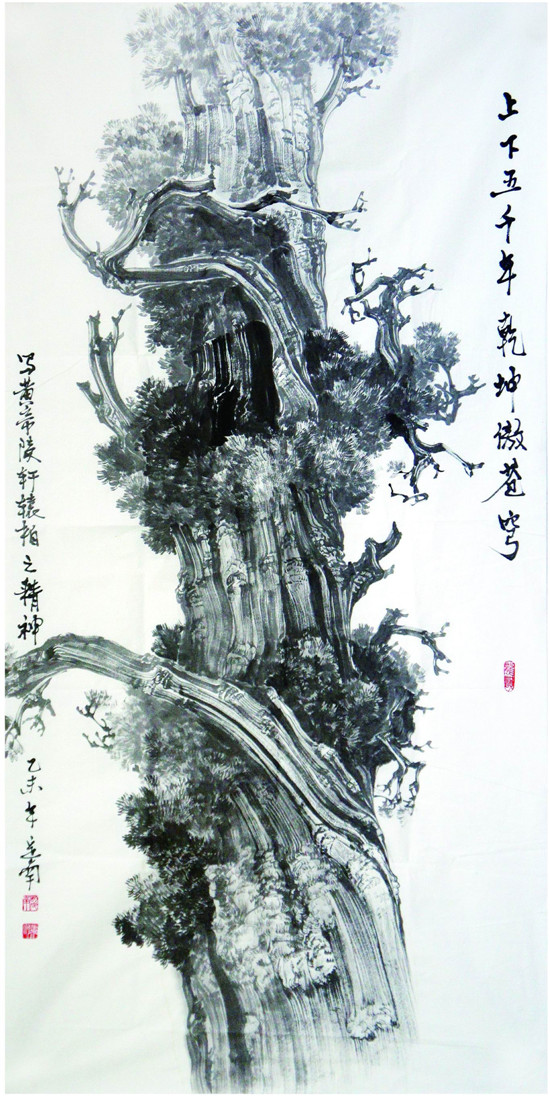 上下五千年乾坤傲苍穹
写黄帝陵轩辕柏之精神
乙未年